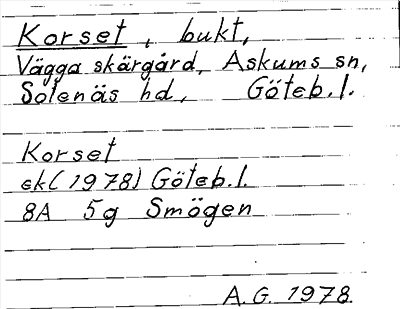 Korset, bukt,
Vägga skärgård, Askums sn,
Sotenäs hd, Göteb. l.
Korset
ek (1978) Göteb. l.
8A 5g Smögen
A. G. 1978.